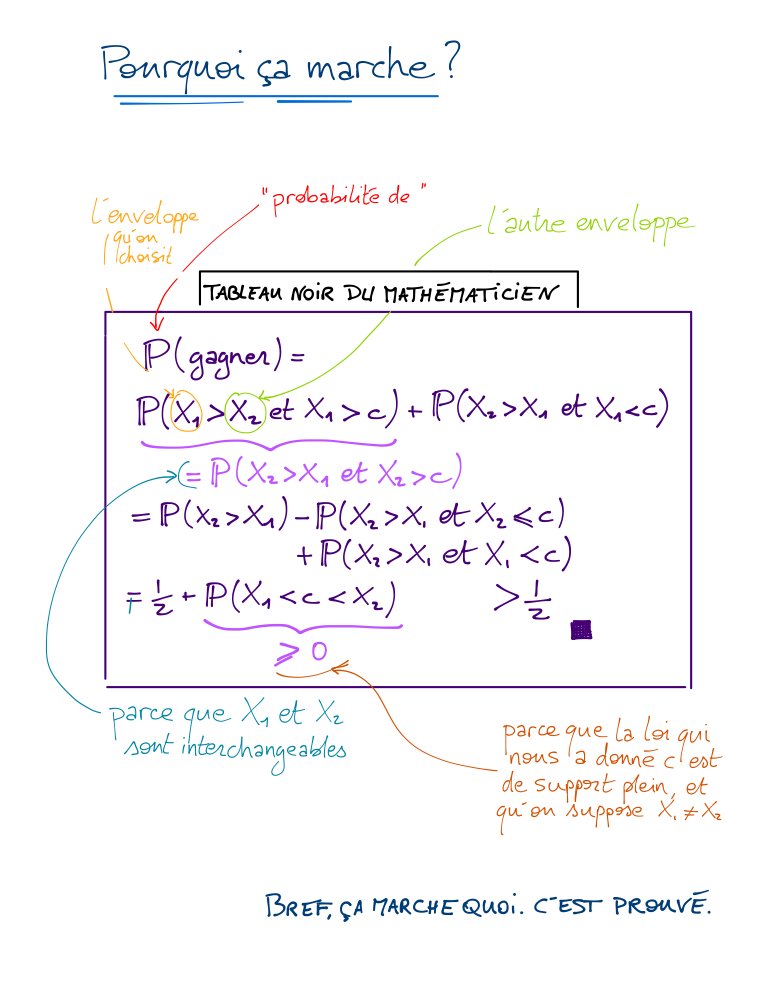 Pourquoi ça marche ?
"probabilite de"
l'enveloppe
qu'on
choisit
l'autre enveloppe
TABLEAU NOIR DU MATHÉMATICIEN
ℙ(gagner) =
ℙ(X₁ > X₂ et X₁ > c) + ℙ(X₂ > X₁ et X₁ < c)
(= ℙ(X₂ > X₁ et X₂ > c)
= ℙ(X₂ > X₁) − ℙ(X₂ > X₁ et X₂ ⩽ c)
+ ℙ(X₂ > X₁ et X₁ < c)
= ½ + ℙ(X₁ < c < X₂) > ½
⩾ 0
parce que X₁ et X₂
sont interchangeables
parce que la loi qui
nous a donné c est
de support plein, et
qu'on suppose X₁ ≠ X₂
BREF, ÇA MARCHE QUOI. C'EST PROUVÉ.